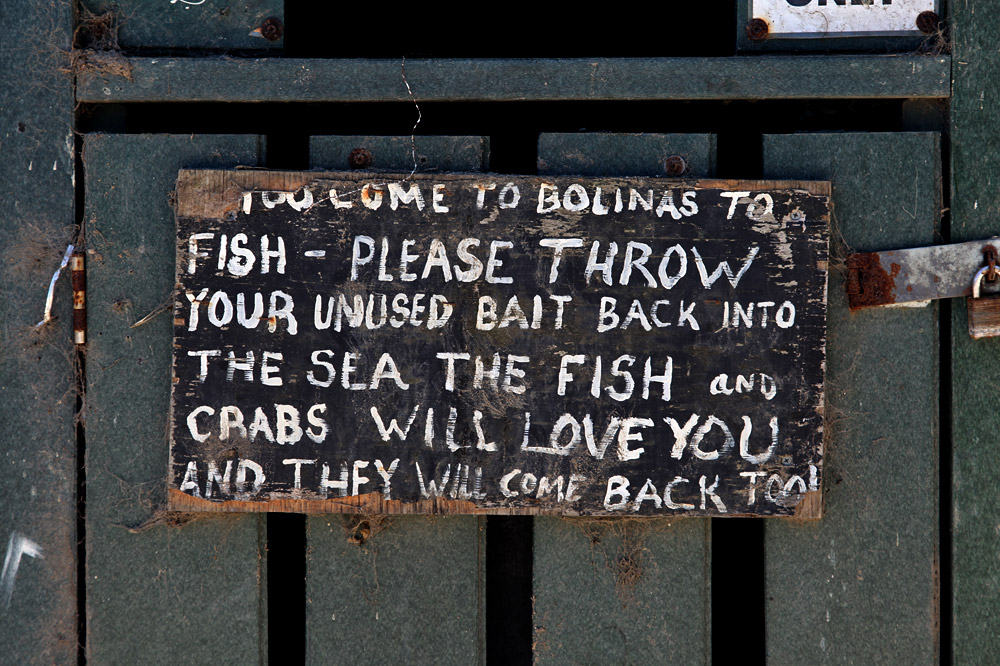 ONLY
YOU COME TO BOLINAS TO
FISH - PLEASE THROW
YOUR UNUSED BAIT BACK INTO
THE SEA THE FISH AND
CRABS WILL LOVE YOU
AND THEY WILL COME BACK TOO!